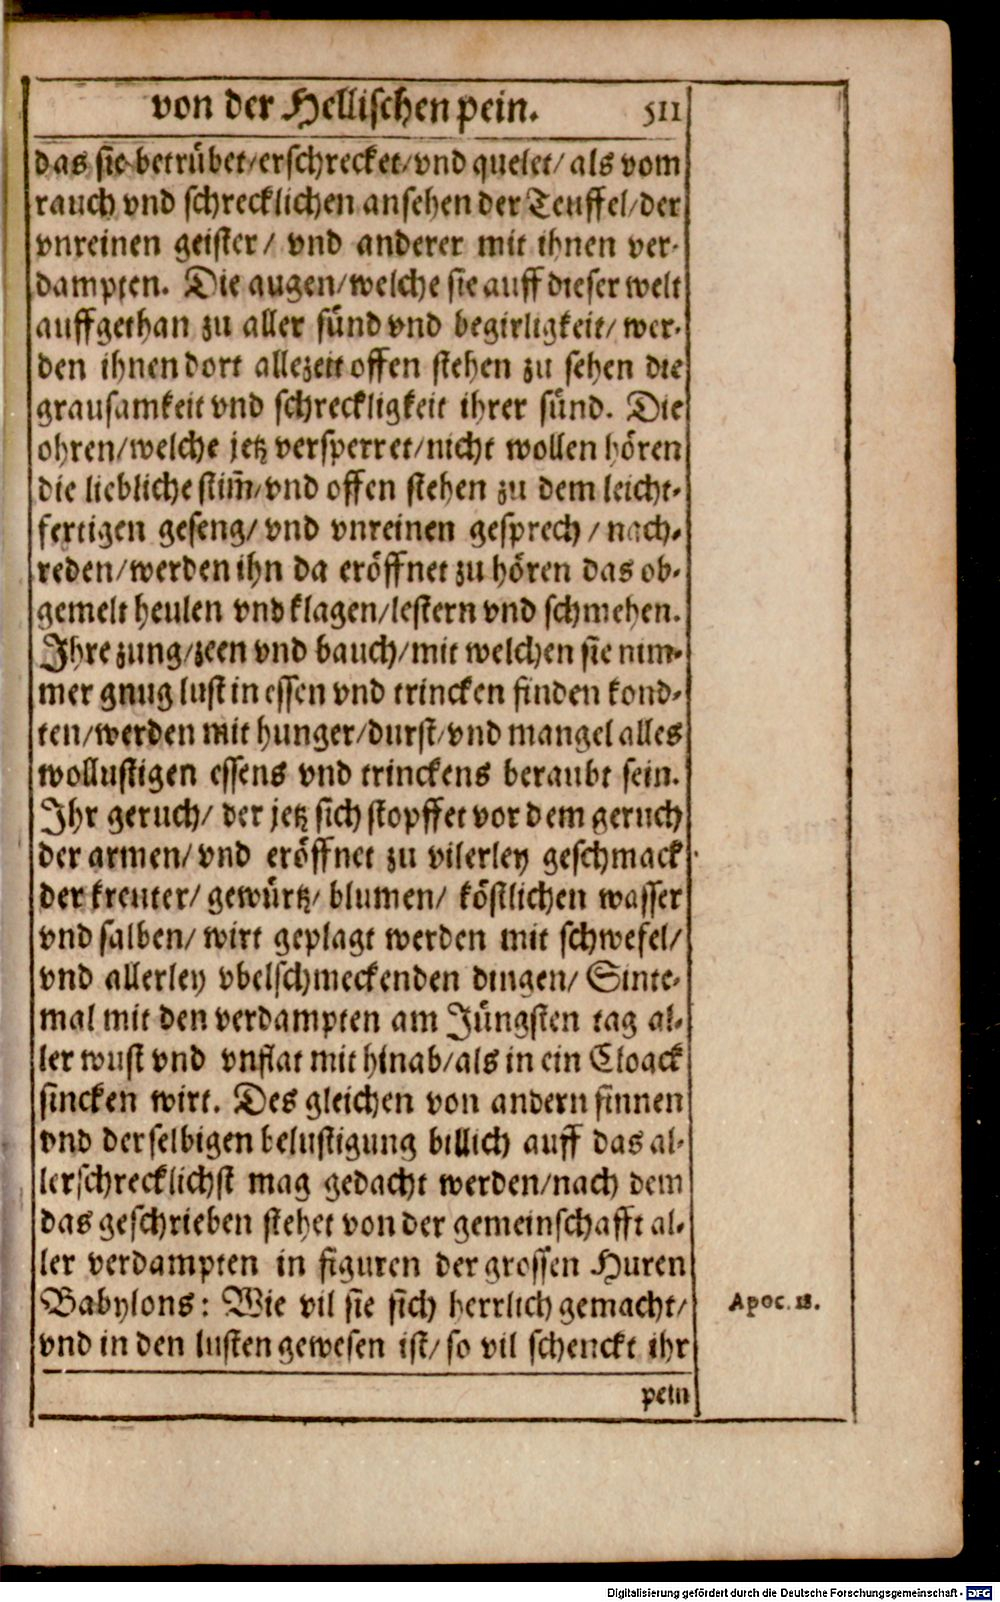 von der Hellischen pein. 511
das sie betrübet/erschrecket/vnd quelet/ als vom
rauch vnd schrecklichen ansehen der Teuffel/der
vnreinen geister/ vnd anderer mit ihnen ver-
dampten. Die augen/welche sie auff dieser welt
auffgethan zu aller sünd vnd begirligkeit/ wer-
den ihnen dort allezeit offen stehen zu sehen die
grausamkeit vnd schreckligkeit ihrer sünd. Die
ohren/welche jetz versperret/nicht wollen hören
die liebliche stim̃/vnd offen stehen zu dem leicht-
fertigen geseng/ vnd vnreinen gesprech/ nach-
reden/werden ihn da eröffnet zu hören das ob-
gemelt heulen vnd klagen/lestern vnd schmehen.
Ihre zung/zeen vnd bauch/mit welchen sie nim-
mer gnug lust in essen vnd trincken finden kond-
ten/werden mit hunger/durst/vnd mangel alles
wollustigen essens vnd trinckens beraubt sein.
Ihr geruch/ der jetz sich stopffet vor dem geruch
der armen/ vnd eröffnet zu vilerley geschmack
der kreuter/ gewürtz/ blumen/ köstlichen wasser
vnd salben/ wirt geplagt werden mit schwefel/
vnd allerley vbelschmeckenden dingen/ Sinte-
mal mit den verdampten am Jüngsten tag al-
ler wust vnd vnflat mit hinab/als in ein Cloack
sincken wirt. Des gleichen von andern sinnen
vnd derselbigen belustigung billich auff das al-
lerschrecklichst mag gedacht werden/nach dem
das geschrieben stehet von der gemeinschafft al-
ler verdampten in figuren der grossen Huren
Babylons: Wie vil sie sich herrlich gemacht/
vnd in den lusten gewesen ist/ so vil schenckt ihr
Apoc. 18.
pein
Digitalisierung gefördert durch die Deutsche Forschungsgemeinschaft - DFG